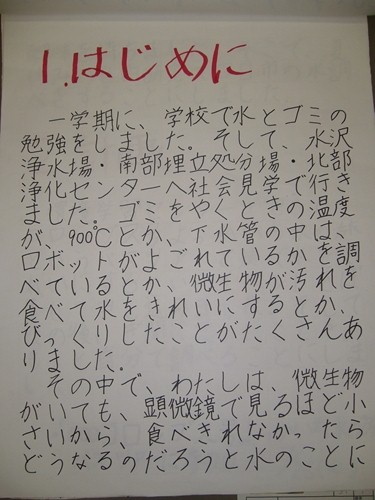 1.はじめに
一学期に、学校で水とゴミの
勉強をしました。そして、水沢
浄水場・南部埋立処分場・北部
浄化センターへ社会見学で行き
ました。ゴミをやくときの温度
が、900℃とか、下水管の中は、
ロボットがよごれているかを調
べているとか、微生物が汚れを
食べて水をきれいにするとか、
びっくりしたことがたくさんあ
りました。
その中で、わたしは、微生物
がいても、顕微鏡で見るほど小
さいから、食べきれなかったら
どうなるのだろうと水のことに